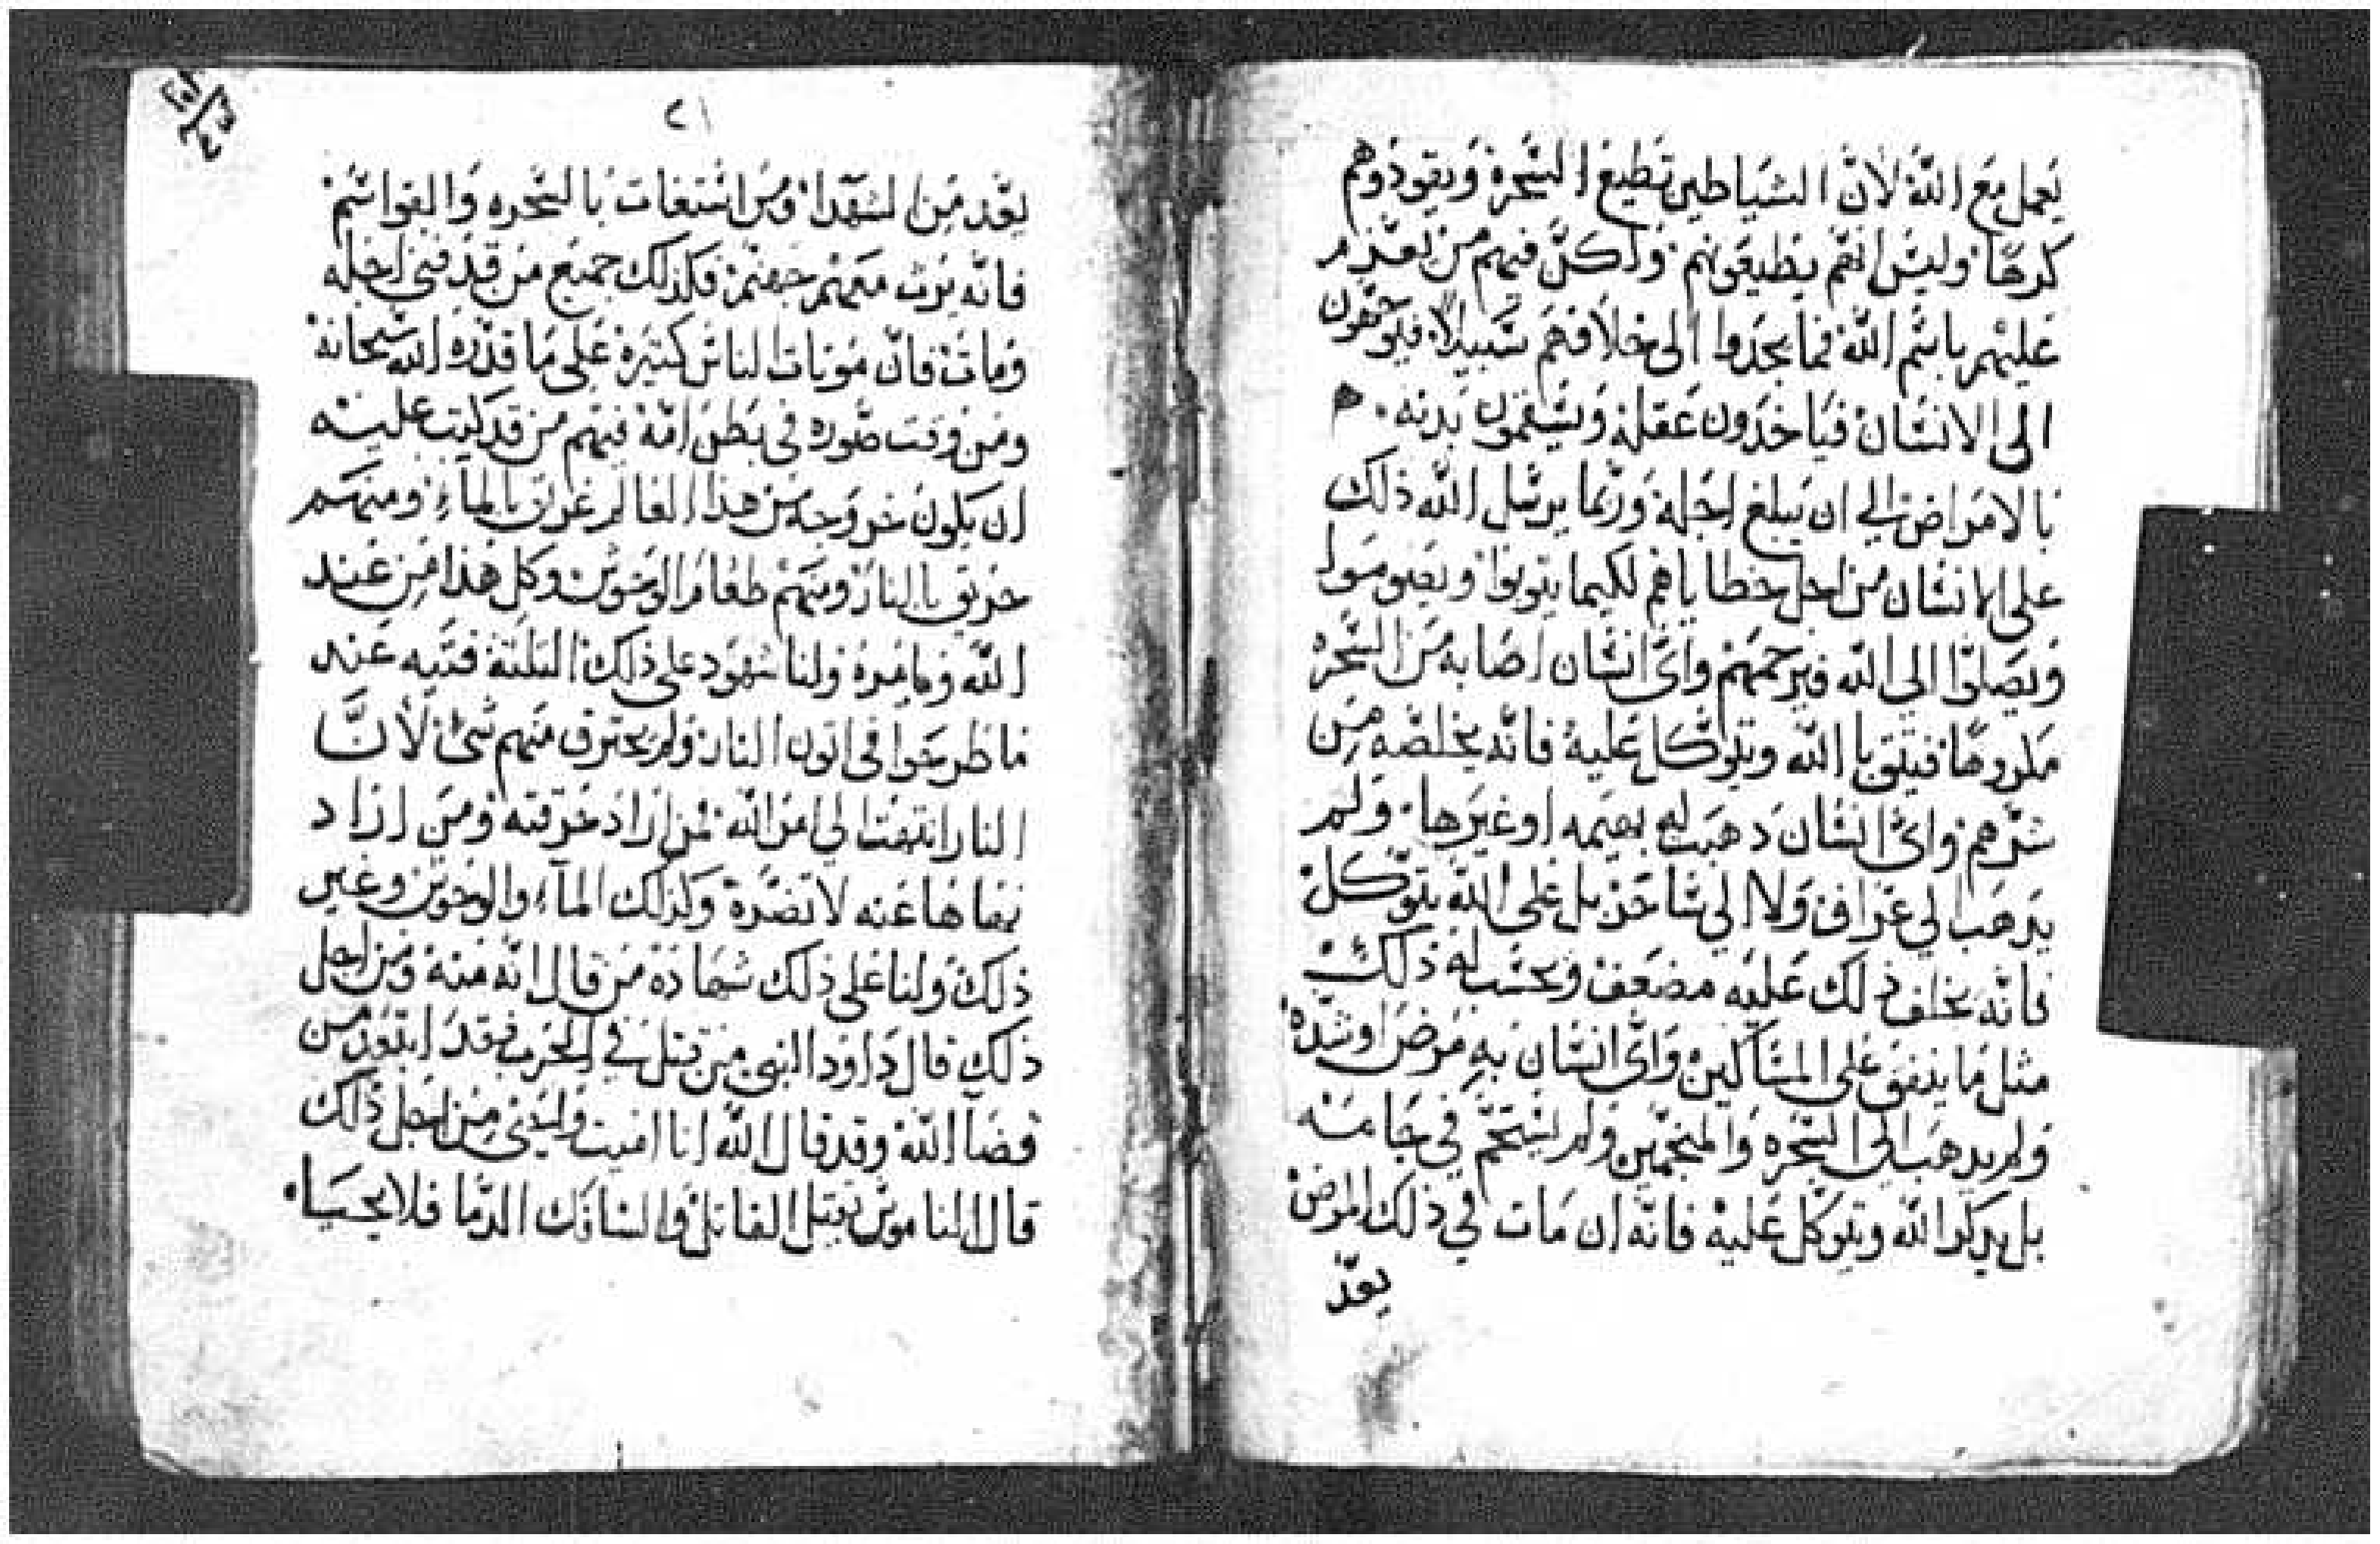 يعمل مع الله لان الشياطين تطيع السحره ويقودوهم
كرها وليس انهم يطيعونهم ولكن فيهم من يعزم
عليهم باسم الله فما يجدوا الى خلافهم سبيلا فيوجهون
الى الانسان فياخدون عقله ويسقمون بدنه
بالامراض الي ان يبلغ اجله وربما يرسل الله ذلك
على الانسان من اجل خطاياهم لكيما يتوبوا ويصوموا
ويصلوا الى الله فيرحمهم واى انسان اصابه من السحره
مكروها فيثق بالله ويتوكل عليه فانه يخلصه من
شرهم واى انسان دهبت له بهيمه او غيرها ولم
يدهب الي عراف ولا الي ساحر بل على الله يتوكل
فانه يخلف ذلك عليه مضعف ويحسب له ذلك
مثل ما ينفق على المساكين واى انسان به مرض او شده
ولم يدهب الى السحره والمنجمين ولم يستحم في حامته
بل يدكر الله ويتوكل عليه فانه ان مات في ذلك المرض
يعد
٢١
يعد من الشهدا ومن استغات بالسحره والقواسم
فانه يرث معهم جهنم فكذلك جميع من قد فني اجله
ومات فان موتات الناس كتيره على ما قدره الله سبحانه
ومن وقت صوره فى بطن امه فيهم من قد كتب عليه
ان يكون خروجه من هذا العالم غريق بالماء ومنهم
حريق بالنار ومنهم طعام الوحوش وكل هذا من عند
الله وبامره ولنا شهود على ذلك التلتة فتيه عند
ما طرحوا فى اتون النار ولم يحترق منهم شى لان
النار انتهت الي امر الله لمن اراد حرقته ومن اراد
نفاها عنه لا تضره وكذلك الماء والوحوش وغير
ذلك ولنا على ذلك شهادة من قال انه منه ومن اجل
ذلك قال داوود النبى من قتل في الحرب فقد ابتور من
قضا الله وقد قال الله انا اميت واحيى من اجل ذلك
قال الناموس يقتل القاتل والسافك الدما فلا يحيا